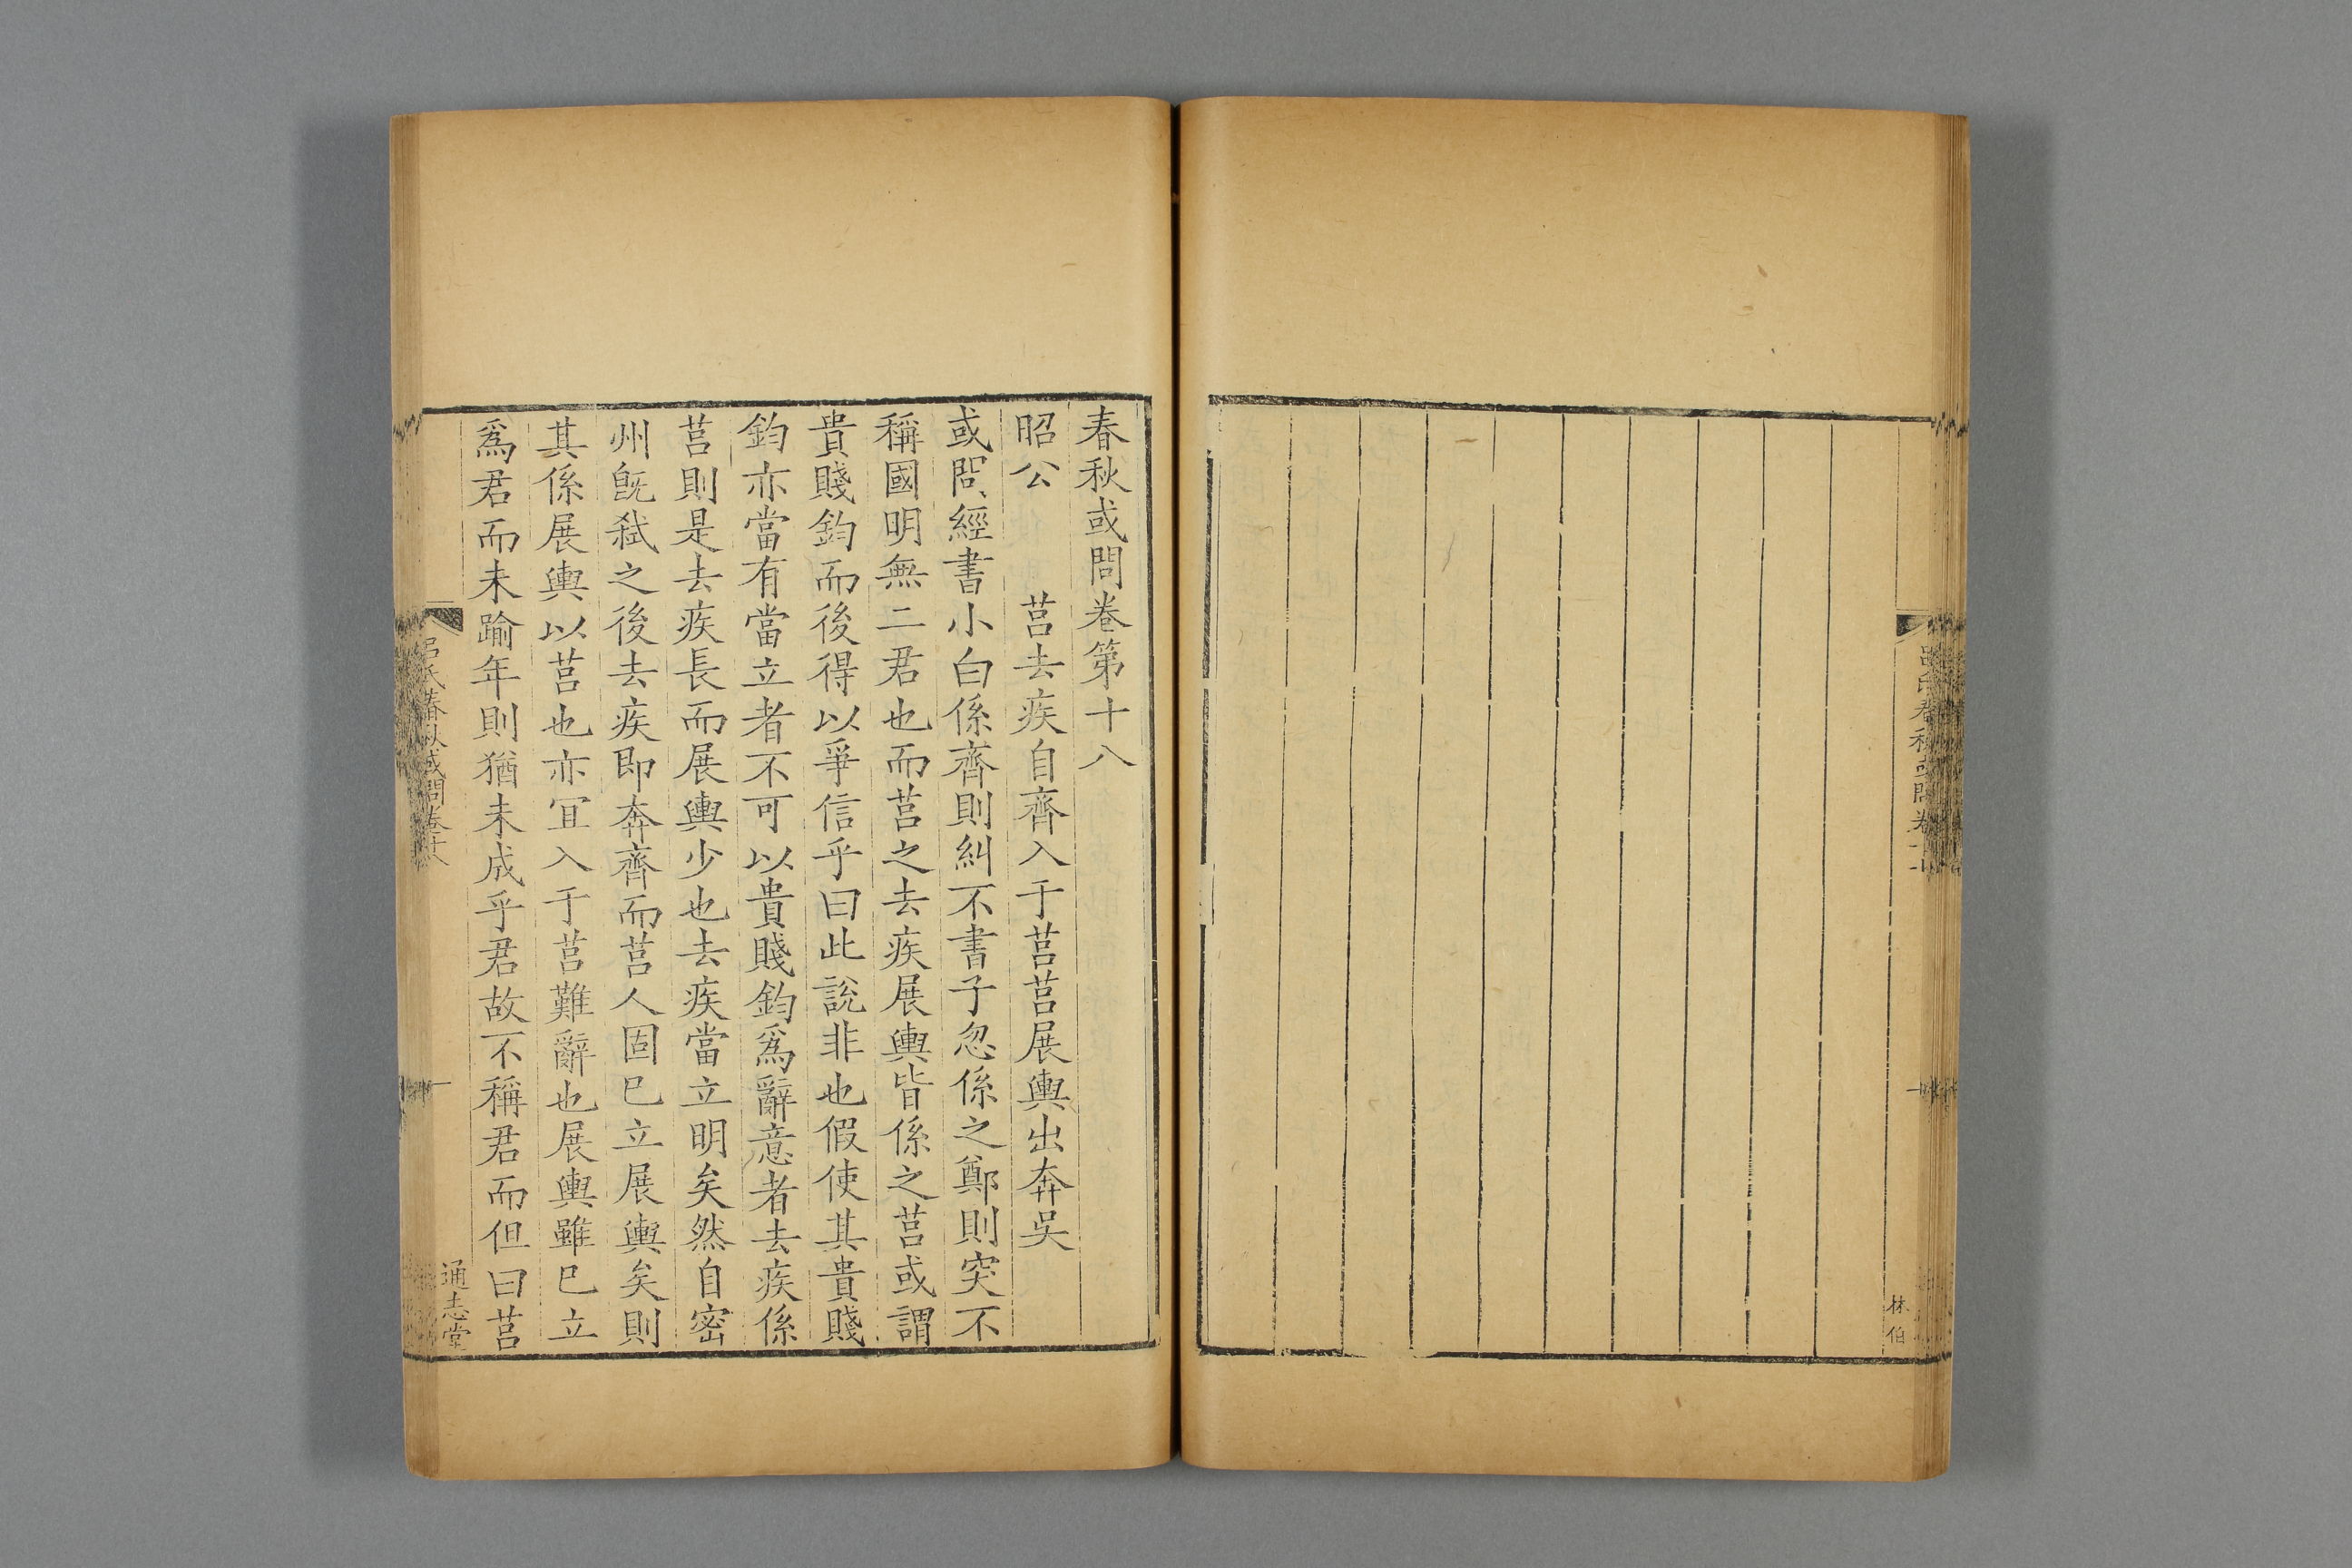 林伯
春秋或問卷第十八
昭公　　莒去疾自齊入于莒莒展輿出奔吳
或問經書小白係齊則糾不書子忽係之鄭則突不
稱國明無二君也而莒之去疾展輿皆係之莒或謂
貴賤鈞而後得以爭信乎曰此說非也假使其貴賤
鈞亦當有當立者不可以貴賤鈞爲辭意者去疾係
莒則是去疾長而展輿少也去疾當立明矣然自密
州旣弒之後去疾即奔齊而莒人固巳立展輿矣則
其係展輿以莒也亦冝入于莒難辭也展輿雖巳立
爲君而未踰年則猶未成乎君故不稱君而但曰莒
呂氏春秋或問卷十八
一
通志堂